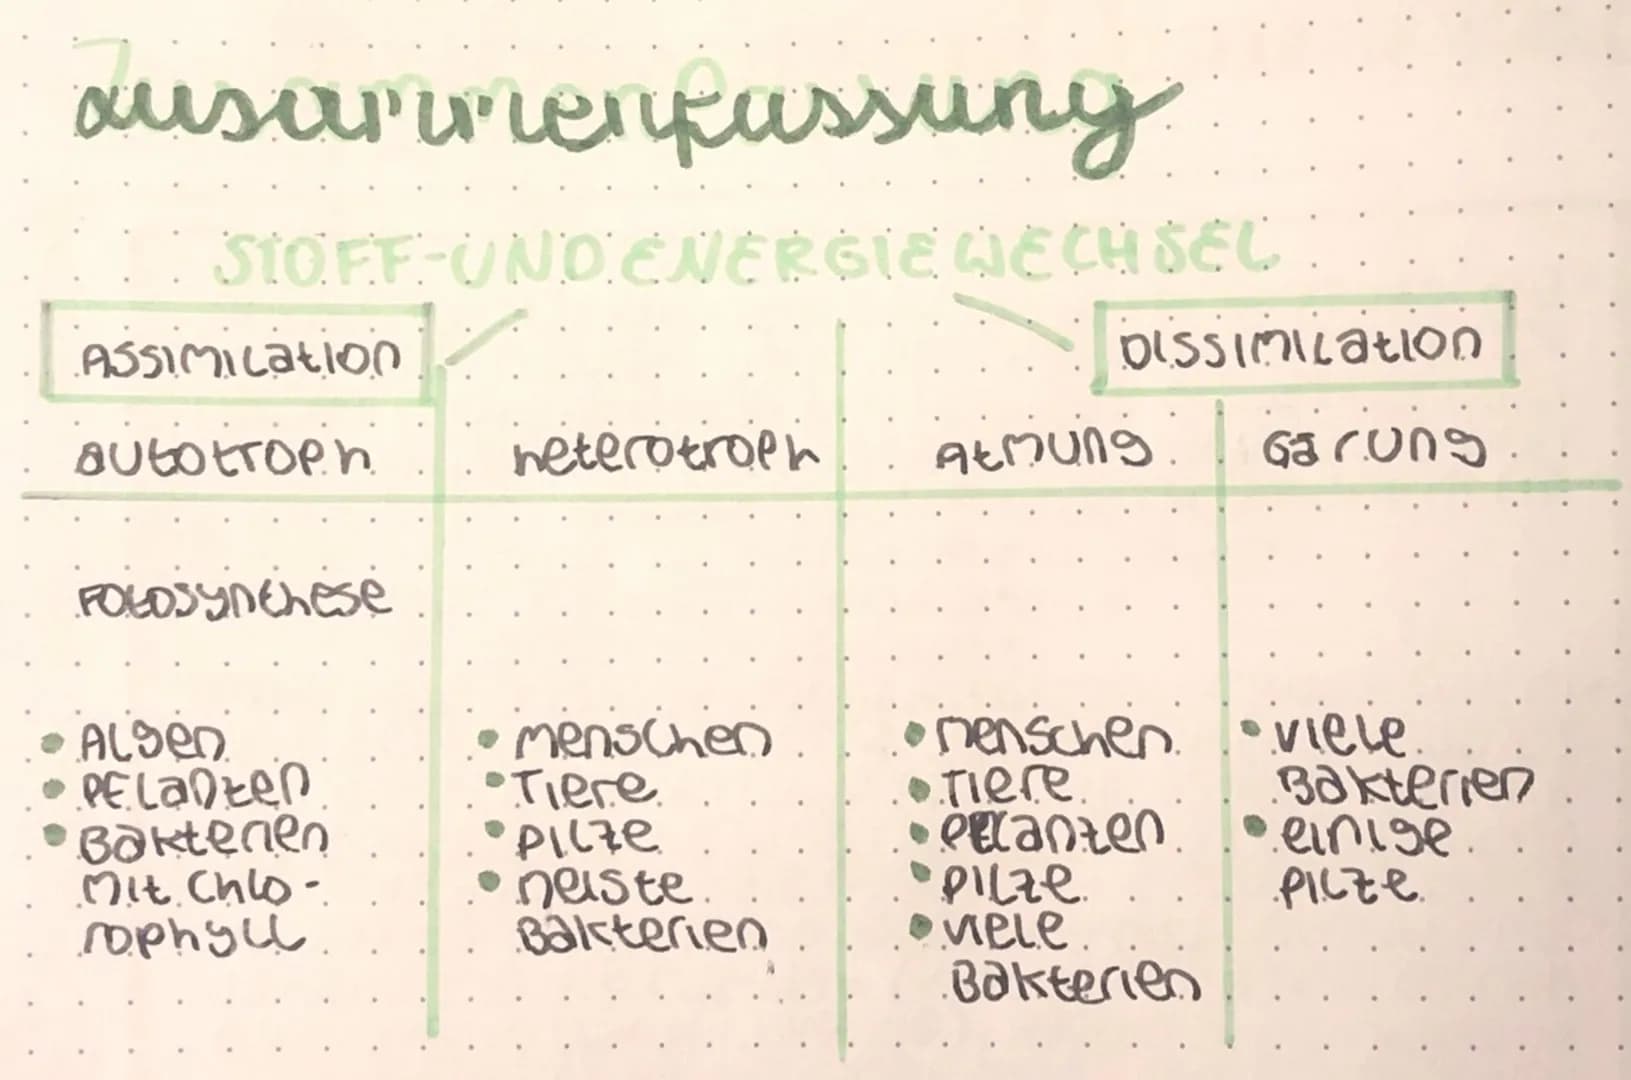 Zusammenfassung
STOFF-UND ENERGIEWECHSEL
Assimilation
Dissimilation
autotroph
heterotroph
Atmung
Gärung
Fotosynthese
• Algen
• Pflanzen
• Bakterien
mit Chlo-
rophyll
• Menschen
• Tiere
• Pilze
• meiste
Bakterien
• Menschen
• Tiere
• Pflanzen
• Pilze
• viele
Bakterien
• viele
Bakterien
• einige
Pilze